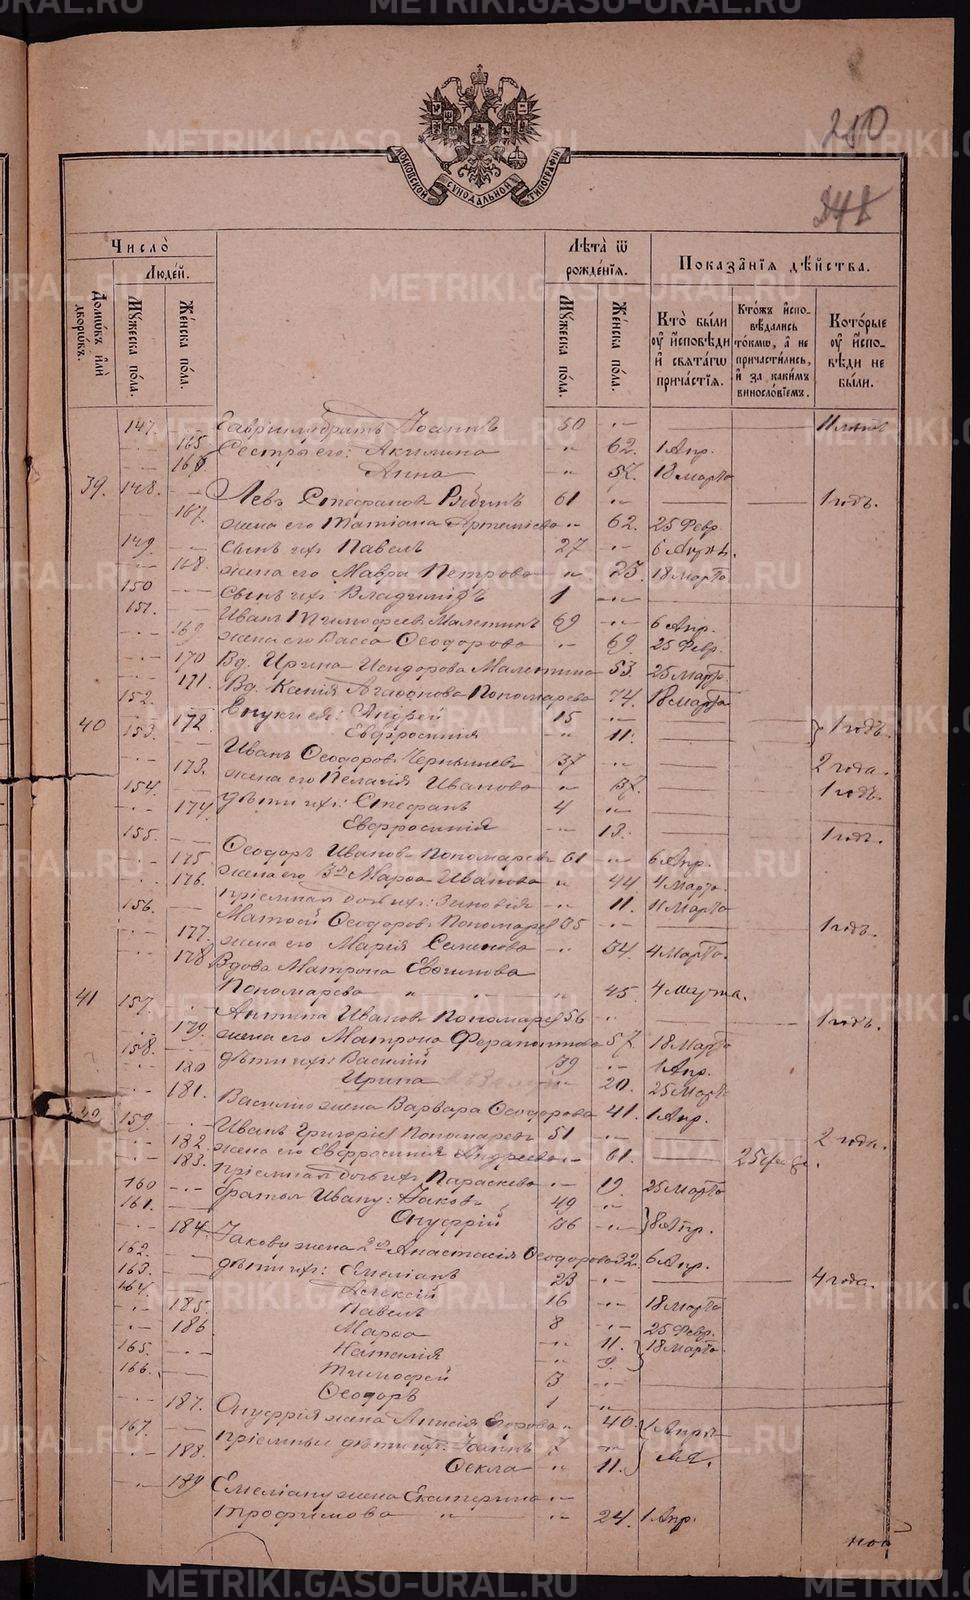 METRIKI.GASO-URAL.RU
210
МОСКОВСКОЙ СѴНОДАЛЬНОЙ ТИПОГРАФІИ
Число̀
Людє́й.
Домѡ́въ и҆лѝ дворѡ́въ.
Мꙋ́жеска по́ла.
Же́нска по́ла.
Лѣ́та ѿ рожде́нїѧ.
Мꙋ́жеска по́ла.
Же́нска по́ла.
Показа̑нїѧ дѣ́йства.
Кто̀ бы́ли оу҆ и҆спо́вѣди и҆ свѧта́гѡ прича́стїѧ.
Кто́жъ и҆спо-вѣ́дались то́кмѡ, а҆ не причасти́лись, и҆ за каки́мъ винослові́емъ.
Кото́рые оу҆ и҆спо-вѣ́ди не бы́ли.
147. братъ Іоаннъ 50
165. Сестры его: Акилина 62. 1 Апр.
166 Анна 18 Марта
39. 148. Левъ Стефановъ 61 1 годъ.
167. жена его Татіана Артеміева 62. 25 Февр.
149. Сынъ ихъ Павелъ 27
168. жена его Мавра Петрова 23. 18 Марта
150 Сынъ ихъ Владиміръ 1
151. Иванъ Тимофеевъ Малетинъ 69 6 Апр.
169 жена его Васса Ѳеодорова 69. 25 Февр.
170 Вд. Ирина Исидорова Малетина 53. 25 Март.
171. Вд. Ксенія Агафонова Пономарева 74. 18 Марта
152. Внуки ея: Андрей 15
40 153. 172. Евфросинія 11. 1 годъ.
Иванъ Ѳеодоровъ Чернышевъ 37 2 года.
173. жена его Пелагія Иванова 1 годъ.
154. дѣти ихъ: Стефанъ 4
174 Евфросинія 13. 1 годъ.
155. Ѳеодоръ Ивановъ Пономаревъ 61 6 Апр.
175 жена его Марѳа Иванова 44 4 Марта.
176. пріемная дочь ихъ: Зиновія 11. 11 Марта
156. Матѳей Ѳеодоровъ Пономаревъ 35 1 годъ.
177. жена его Марія Семенова 34. 4 Марта.
178 Вдова Матрона Евѳимова
Пономарева 45. 4 Марта.
41 157. Антипа Ивановъ Пономаревъ 56 1 годъ.
179. жена его Матрона Ферапонтова 57. 18 Марта
158. дѣти ихъ: Василій 39 1 Апр.
180 Ирина 20. 25 Марта
181. Василію жена Варвара Ѳеодорова 41. 1 Апр.
159. Иванъ Григоріевъ Пономаревъ 51 2 года.
182. жена его Евфросинія Андреева 61.
183. пріемная дочь ихъ Параскева 19. 25 Марта
160 братья Ивану: Іаковъ 49
161. Онуфрій 36 8 Апр.
184. Іакову жена Анастасія Ѳеодорова 32. 6 Апр.
162. дѣти ихъ: Емеліанъ 23 4 года.
163. Алексій 16 18 Марта
164. Павелъ 8 25 Февр.
185. Марѳа 11. 18 Марта
186 Наталія 9.
165. Тимофей 3
166. Ѳеодоръ 1
187. Онуфрія жена Егорова 40 1 Апр.
167. пріемные дѣти ихъ: Іоаннъ 7
188. Ѳекла 11.
189 Емеліану жена Екатерина
Трофимова 24. 1 Апр.